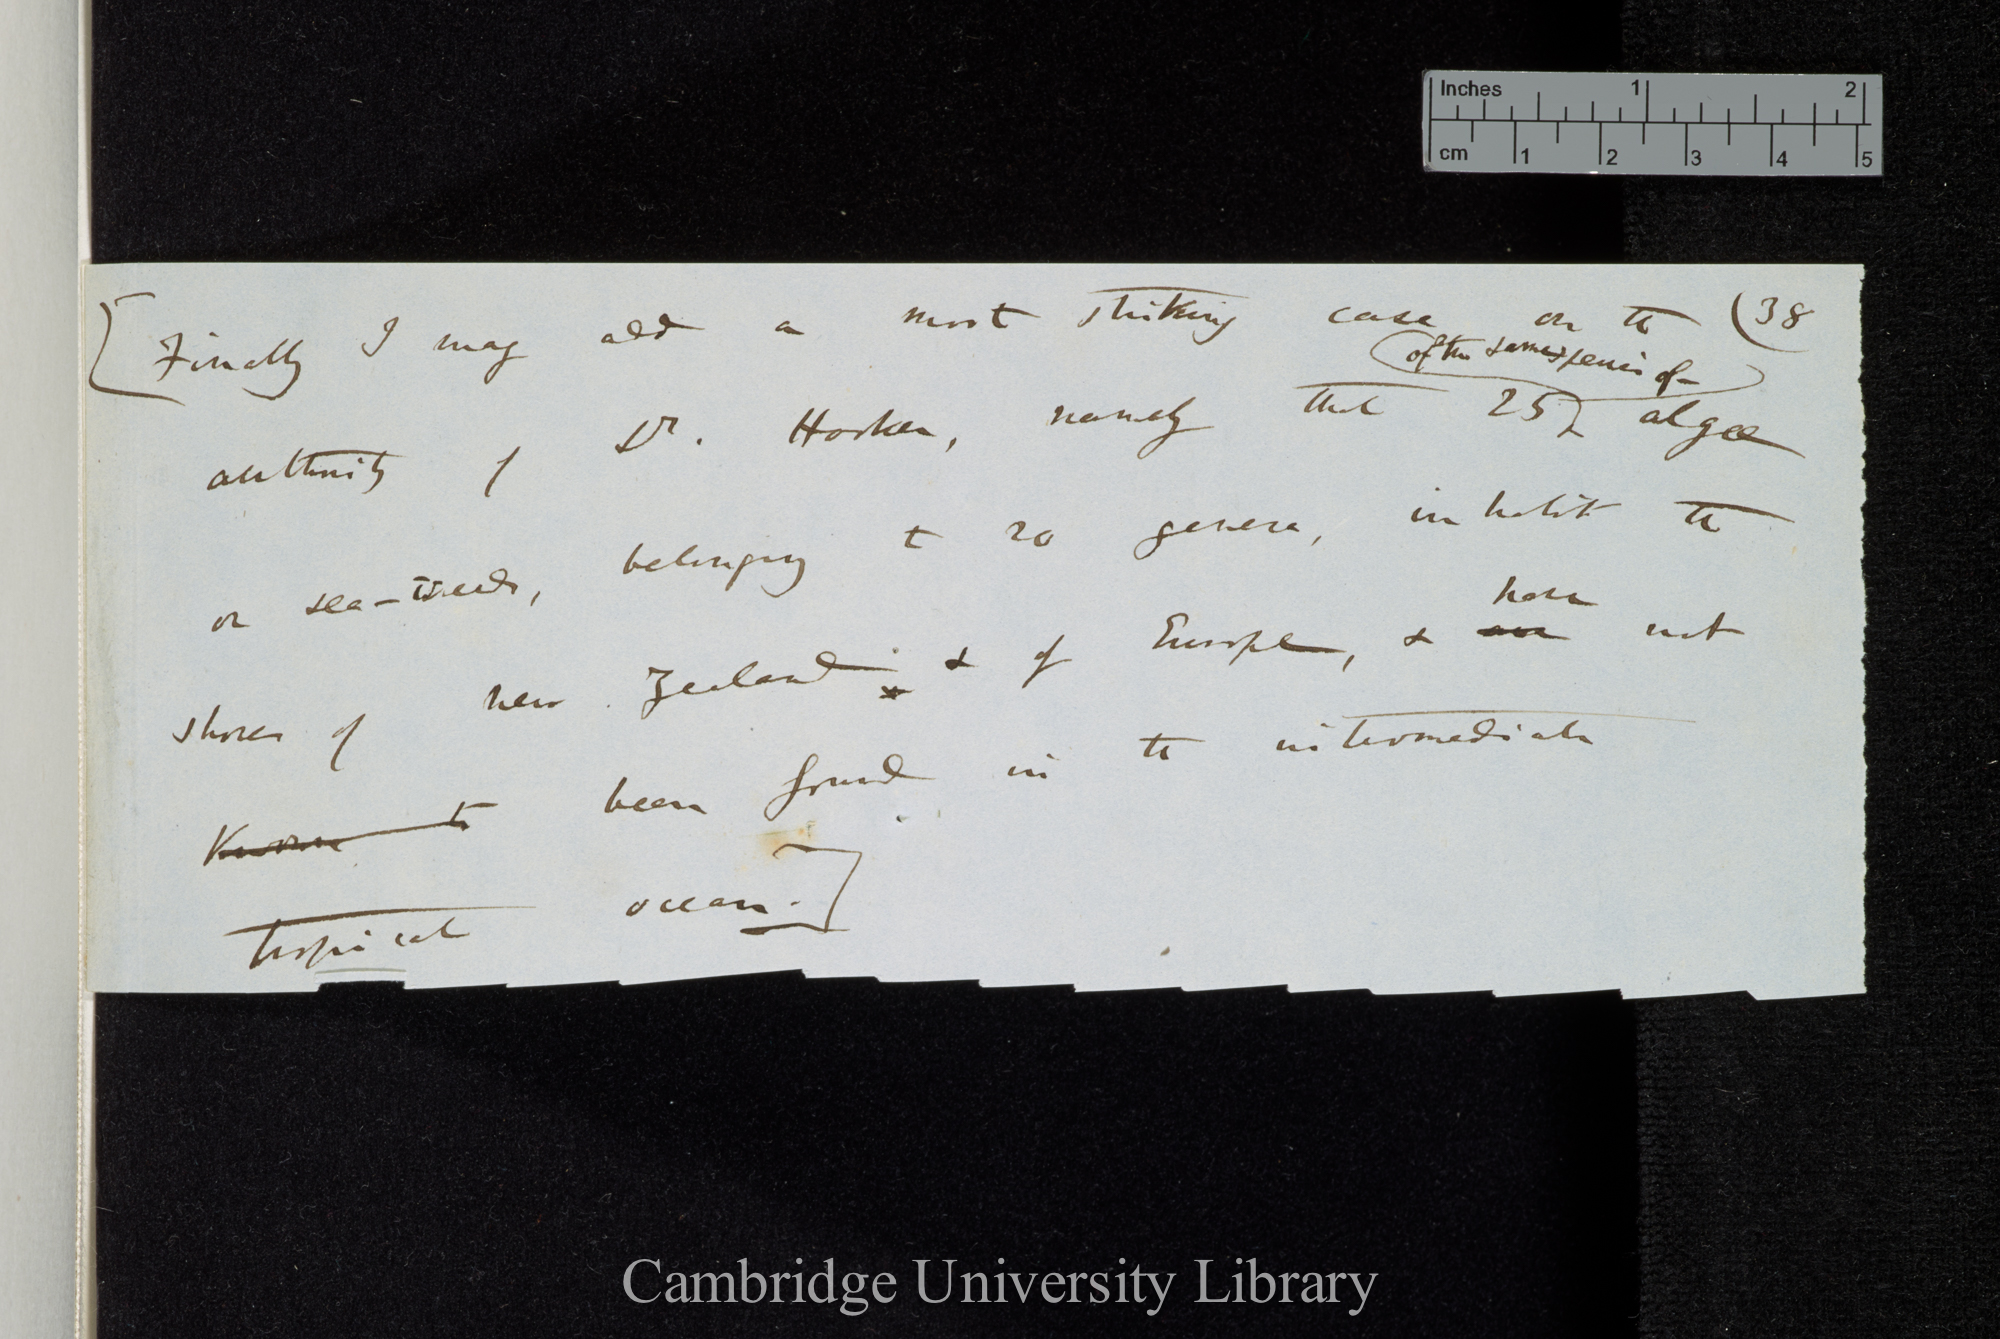 Inches 1 2
cm 1 2 3 4 5
[Finally I may add a most striking case on the (38
of the same species of
authority of Dr. Hooker, namely that 25 algæ
or sea-weeds, belonging to 20 genera, inhabit the
have
shores of new Zealand & of Europe, & are not
Known to been found in the intermediate
tropical ocean.]
Cambridge University Library